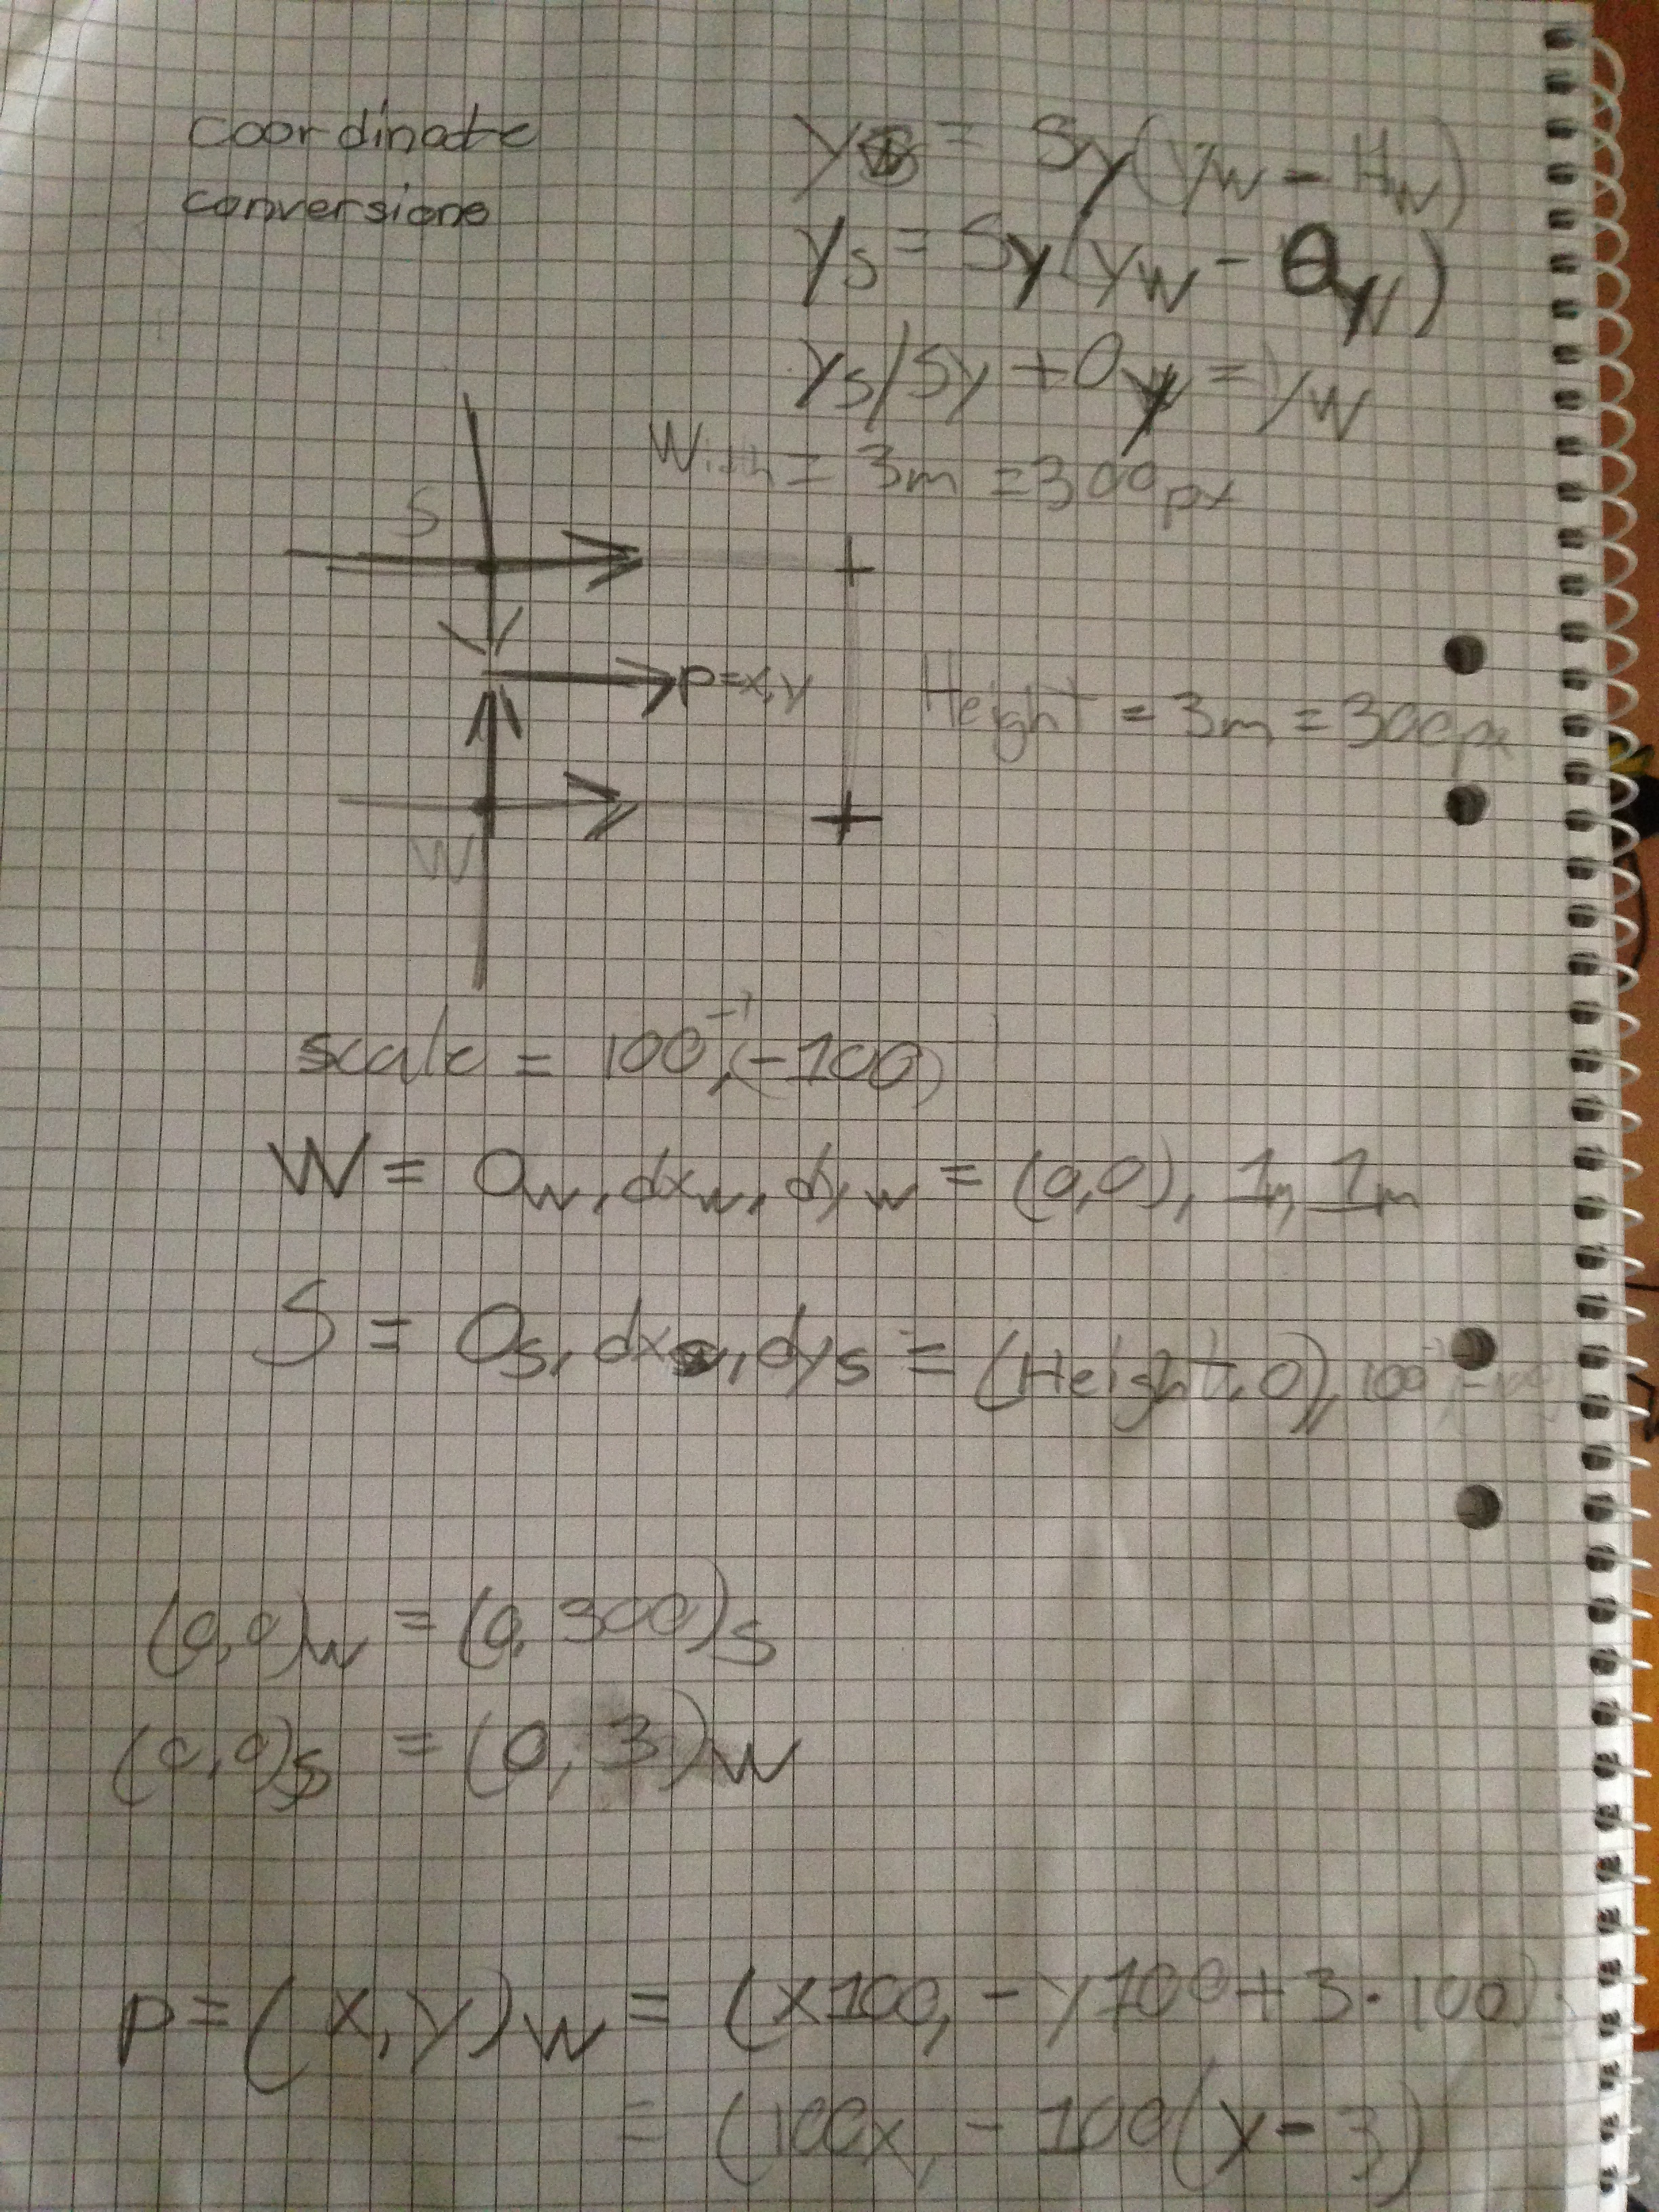 coordinate
conversions
ys = Sy(yw - Hw)
ys = Sy(yw - Oy)
ys/Sy + Oy = yw
Width = 3m = 300px
S
p=x,y
Height = 3m = 300px
W
scale = 100⁻¹,(-100)
W = Ow, dxw, dyw = (0,0), 1m, 1m
S = Os, dxs, dys = (Height,0), 100⁻¹
(0,0)w = (0,300)s
(0,0)s = (0,3)w
p=(x,y)w = (x100, -y100+3·100)s
= (100x, -100(y-3)